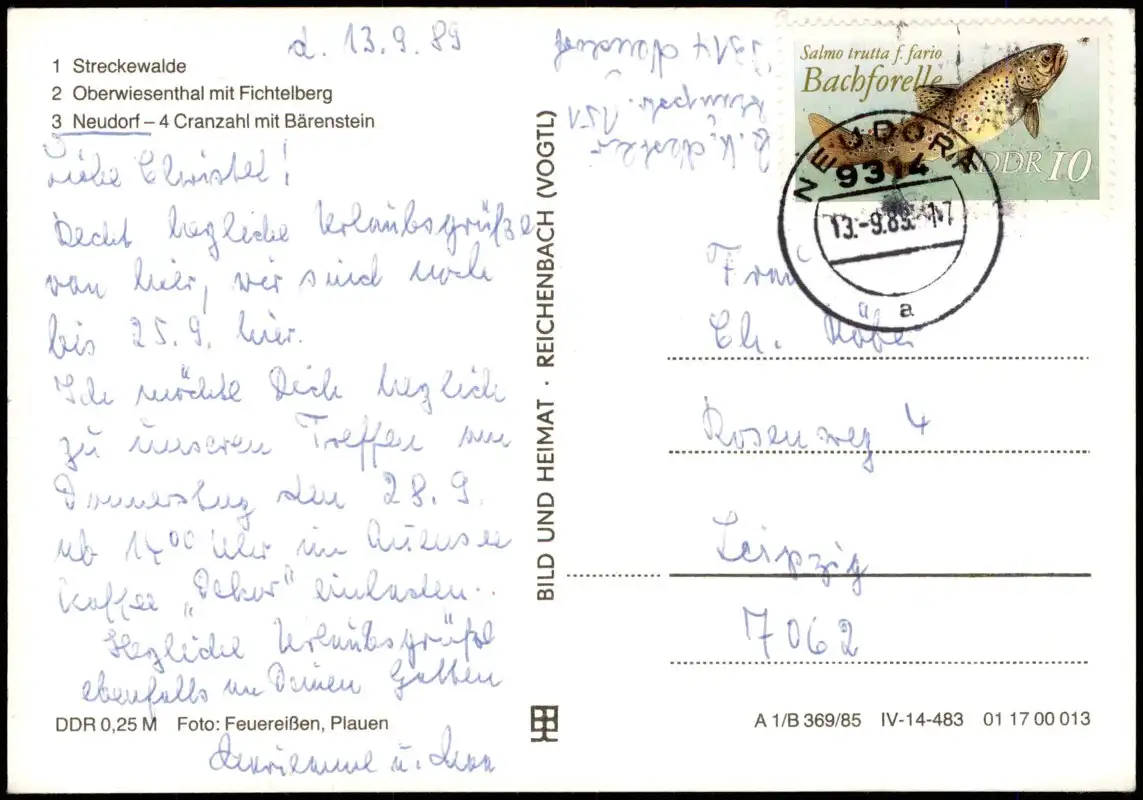 d. 13.9.89
1 Streckewalde
2 Oberwiesenthal mit Fichtelberg
3 Neudorf – 4 Cranzahl mit Bärenstein
Liebe Christel!
Recht herzliche Urlaubsgrüße
von hier, wir sind noch
bis 25.9. hier.
Ich möchte Dich herzlich
zu unseren Treffen am
Donnerstag den 28.9.
ab 14⁰⁰ Uhr im Auensee
Kaffee „Dekor“ einladen..
Herzliche Urlaubsgrüße
ebenfalls an Deinen Gatten
Marianne u.
DDR 0,25 M Foto: Feuereißen, Plauen
BILD UND HEIMAT · REICHENBACH (VOGTL)
151
9314 Neudorf
Salmo trutta f. fario
Bachforelle
DDR 10
NEUDORF
9314
13.-9.89.-17
a
Frau
Ch.
Rosenweg 4
Leipzig
7062
A 1/B 369/85 IV-14-483 01 17 00 013